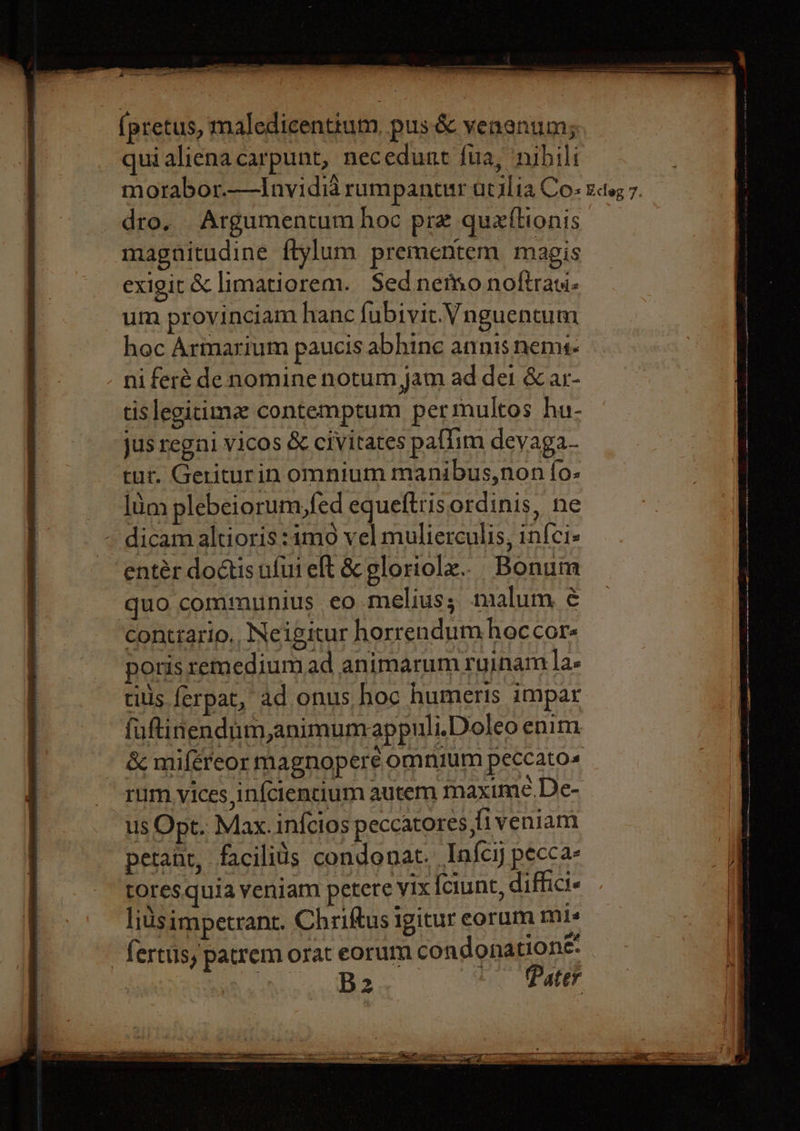 ſpretus, maledicentium, pus & venenum;
qui aliena carpunt, nec edunt ſua, nihili
morabor.—Invidiâ rumpantur ut ilia Co- Edeg 7.
dro. Argumentum hoc præ quæſtionis
magnitudine ſtylum prementem magis
exigit & limatiorem. Sed nemo noſtrati-
um provinciam hanc ſubivit. Vnguentum
hoc Armarium paucis abhinc annis nemi-
ni ferè de nomine notum jam ad dei & ar-
tis legitimæ contemptum permultos hu-
jus regni vicos & civitates paſſim devaga-
tur. Geritur in omnium manibus, non ſo-
lùm plebeiorum, ſed equeſtris ordinis, ne
dicam altioris: imò vel mulierculis, inſci-
entèr doctis uſui eſt & gloriolæ. Bonum
quo communius eo melius; malum è
contrario. Ne igitur horrendum hoc cor-
poris remedium ad animarum ruinam la-
tiùs ſerpat, ad onus hoc humeris impar
ſuſtinendum, animum appuli. Doleo enim
& miſéreor magnoperè omnium peccato-
rum vices, inſcientium autem maximè. De-
us Opt. Max. inſcios peccatores, ſi veniam
petant, faciliùs condonat. Inſcij pecca-
tores quia veniam petere vix ſciunt, diffici-
liùs impetrant. Chriſtus igitur eorum mi-
ſertus, patrem orat eorum condonationē:
B2 Pater